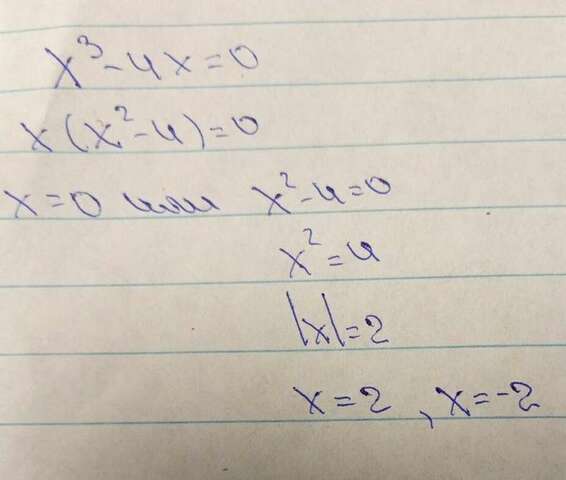 x³-4x=0
x(x²-4)=0
x=0 или x²-4=0
x²=4
|x|=2
x=2, x=-2